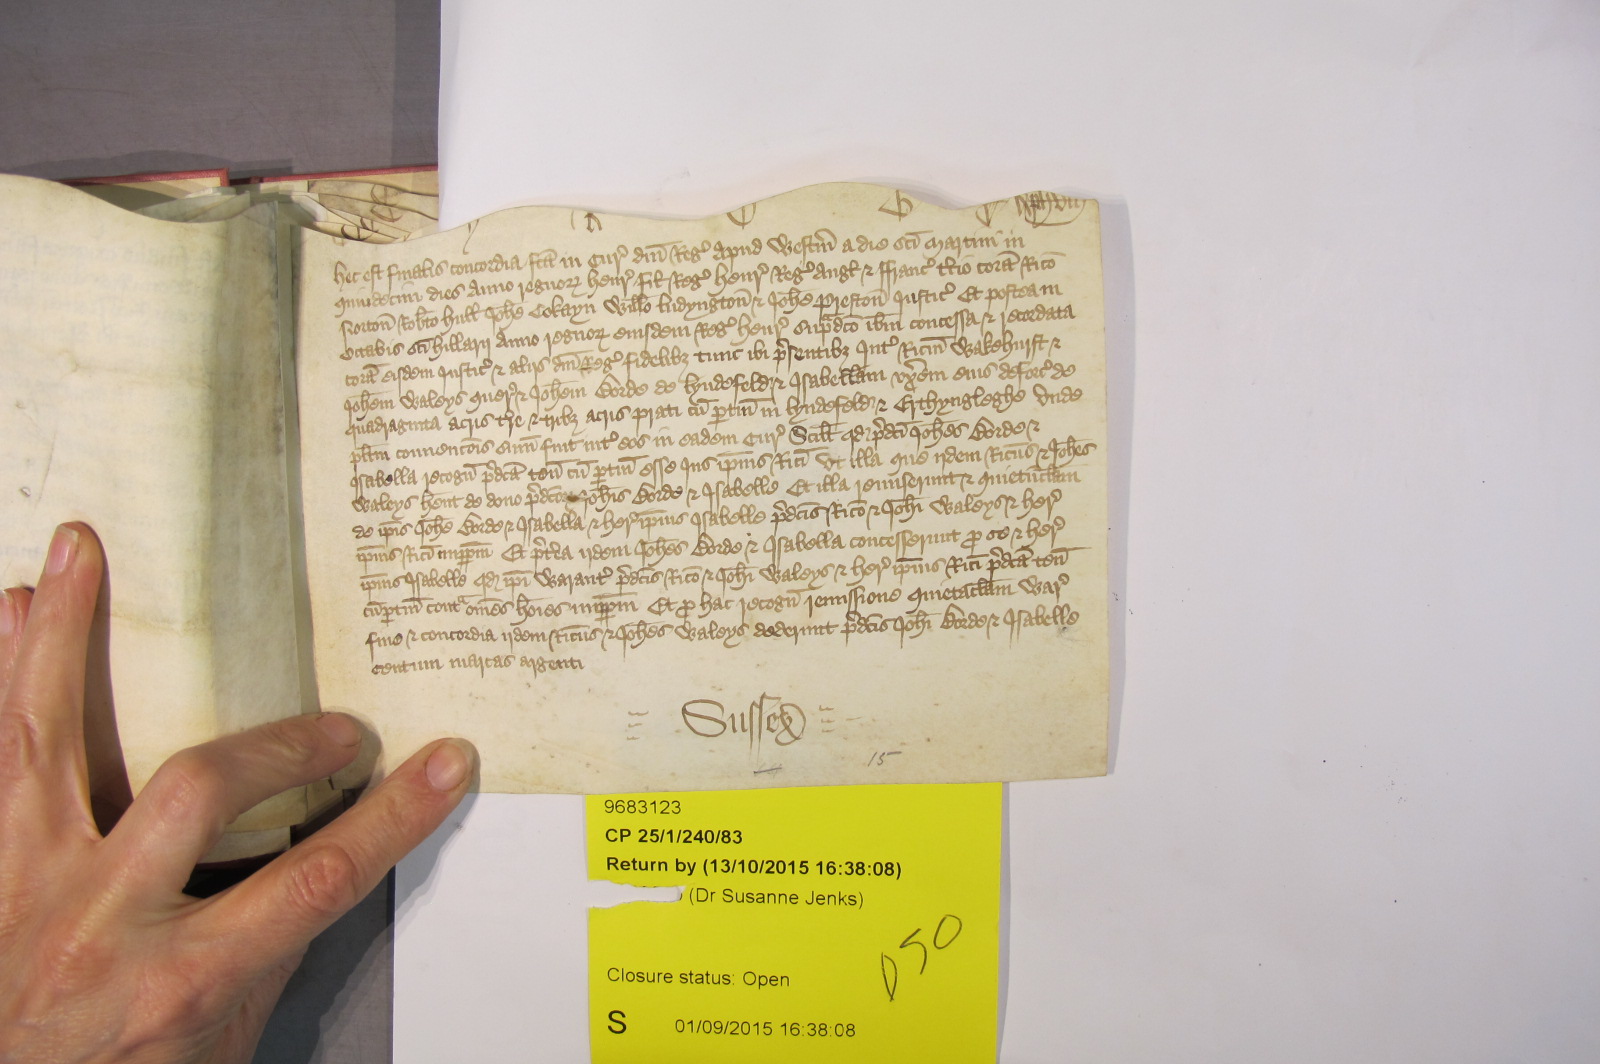 hec est finalis concordia fc̄a in Cur' dn̄i Reg' Apud Westm̄ a die sc̄i Martini in
quindecim dies Anno regnor' henr' fil' Reg' henr' Reg' Angl' & ffranc' t'cio corā Ric̄o
Norton Rob̄to hull Joh̄e Cokayn Will̄o Ludyngton & Joh̄e Preston Justic' Et postea in
Octabis sc̄i hillarii Anno regnor' eiusdem Reg' henr' sup̄dc̄o ib̄m concessa & recordata
corā eisdem Justic' & aliis dn̄i Reg' fidelib' tunc ibi p̄sentib' Int' Ric̄m Wakehurst &
Joh̄em Waleys quer' & Joh̄em Borde de lyndefeld & Isabellam vx̄em eius deforc' de
quadraginta acris t̄re & trib' acris prati cū p̄tin̄ in lyndefeld & Erthyngleghe Vnde
pl̄itm conuenc̄ois sum̄ fuit int' eos in eadem Cur' Scil̄t qd p̄dc̄i Joh̄es Borde &
Isabella recogn̄ p̄dc̄a ten̄ cū p̄tin̄ esse Jus ip̄ius Ric̄i Vt illa que iidem Ric̄us & Joh̄es
Waleys h̄ent de dono p̄dc̄or' Joh̄is Borde & Isabelle Et illa remiserunt & quietūclam̄
de ip̄is Joh̄e Borde & Isabella & her' ip̄ius Isabelle p̄dc̄is Ric̄o & Joh̄i Waleys & her'
ip̄ius Ric̄i imp̄p̄m Et p̄t̄ea iidem Joh̄es Borde & Isabella concesserunt p̄ se & her'
ip̄ius Isabelle qd ip̄i Warant' p̄dc̄is Ric̄o & Joh̄i Waleys & her' ip̄ius Ric̄i p̄dc̄a ten̄
cū p̄tin̄ cont̄a om̄es h̄oies imp̄p̄m Et p̄ hac recogn̄ remissione quietaclam̄ War'
fine & concordia iidem Ric̄us & Joh̄es Waleys dederunt p̄dc̄is Joh̄i Borde & Isabelle
centum marcas argenti
Sussex
15
9683123
CP 25/1/240/83
Return by (13/10/2015 16:38:08)
(Dr Susanne Jenks)
DSO
Closure status: Open
S 01/09/2015 16:38:08